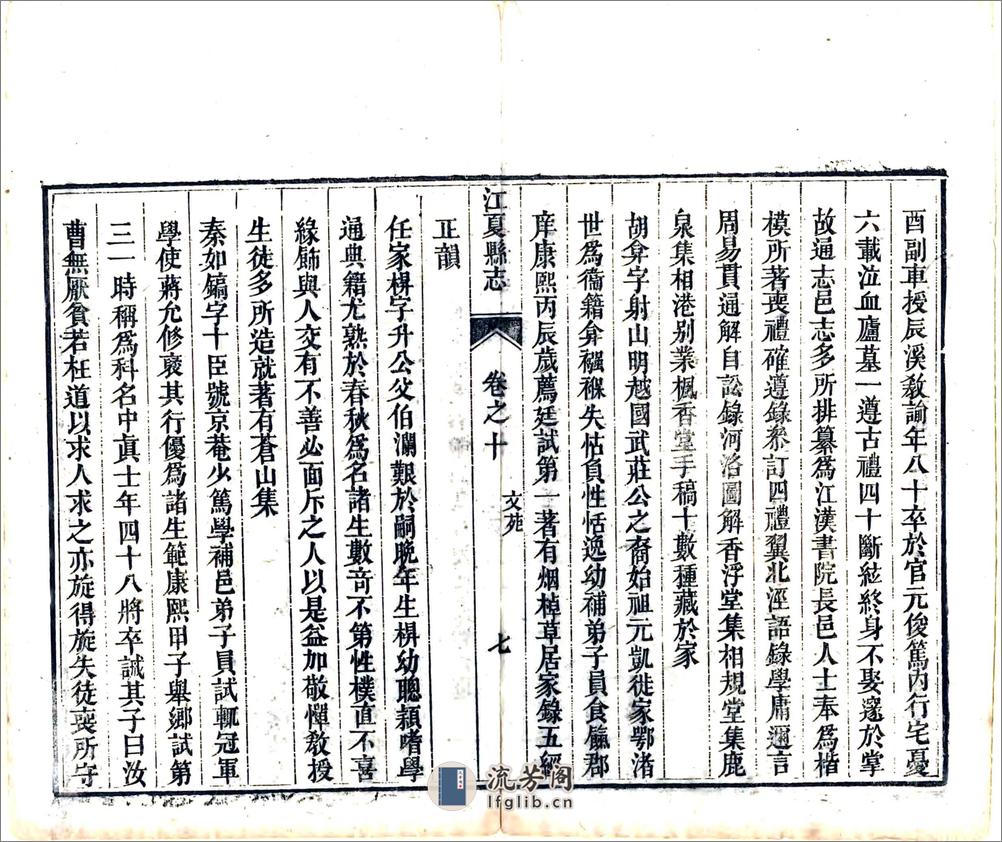 酉副車授辰溪教諭年八十卒於官元俊篤內行宅憂
六載泣血廬墓一遵古禮四十斷絃終身不娶邃於掌
故通志邑志多所排纂爲江漢書院長邑人士奉爲楷
模所著喪禮確遵錄參訂四禮翼北溼語錄學庸邇言
周易貫通解自訟錄河洛圖解香浮堂集相規堂集鹿
泉集相港別業楓香堂手稿十數種藏於家
胡弇字射山明越國武莊公之裔始祖元凱徙家鄂渚
世爲衞籍弇襁褓失怙負性恬逸幼補弟子員食餼郡
庠康熙丙辰歲薦廷試第一著有烟棹草居家錄五經
江夏縣志
卷之十
文苑
七
正韻
任家楫字升公父伯瀾艱於嗣晩年生楫幼聰穎嗜學
通典籍尤熟於春秋爲名諸生數奇不第性樸直不喜
緣飾與人交有不善必面斥之人以是益加敬憚敎授
生徒多所造就著有蒼山集
秦如鎬字十臣號京菴少篤學補邑弟子員試輒冠軍
學使蔣允修褒其行優爲諸生範康熙甲子舉鄉試第
三一時稱爲科名中眞士年四十八將卒誡其子曰汝
曹無厭貧若枉道以求人求之亦旋得旋失徒喪所守
流芳阁
lfglib.cn